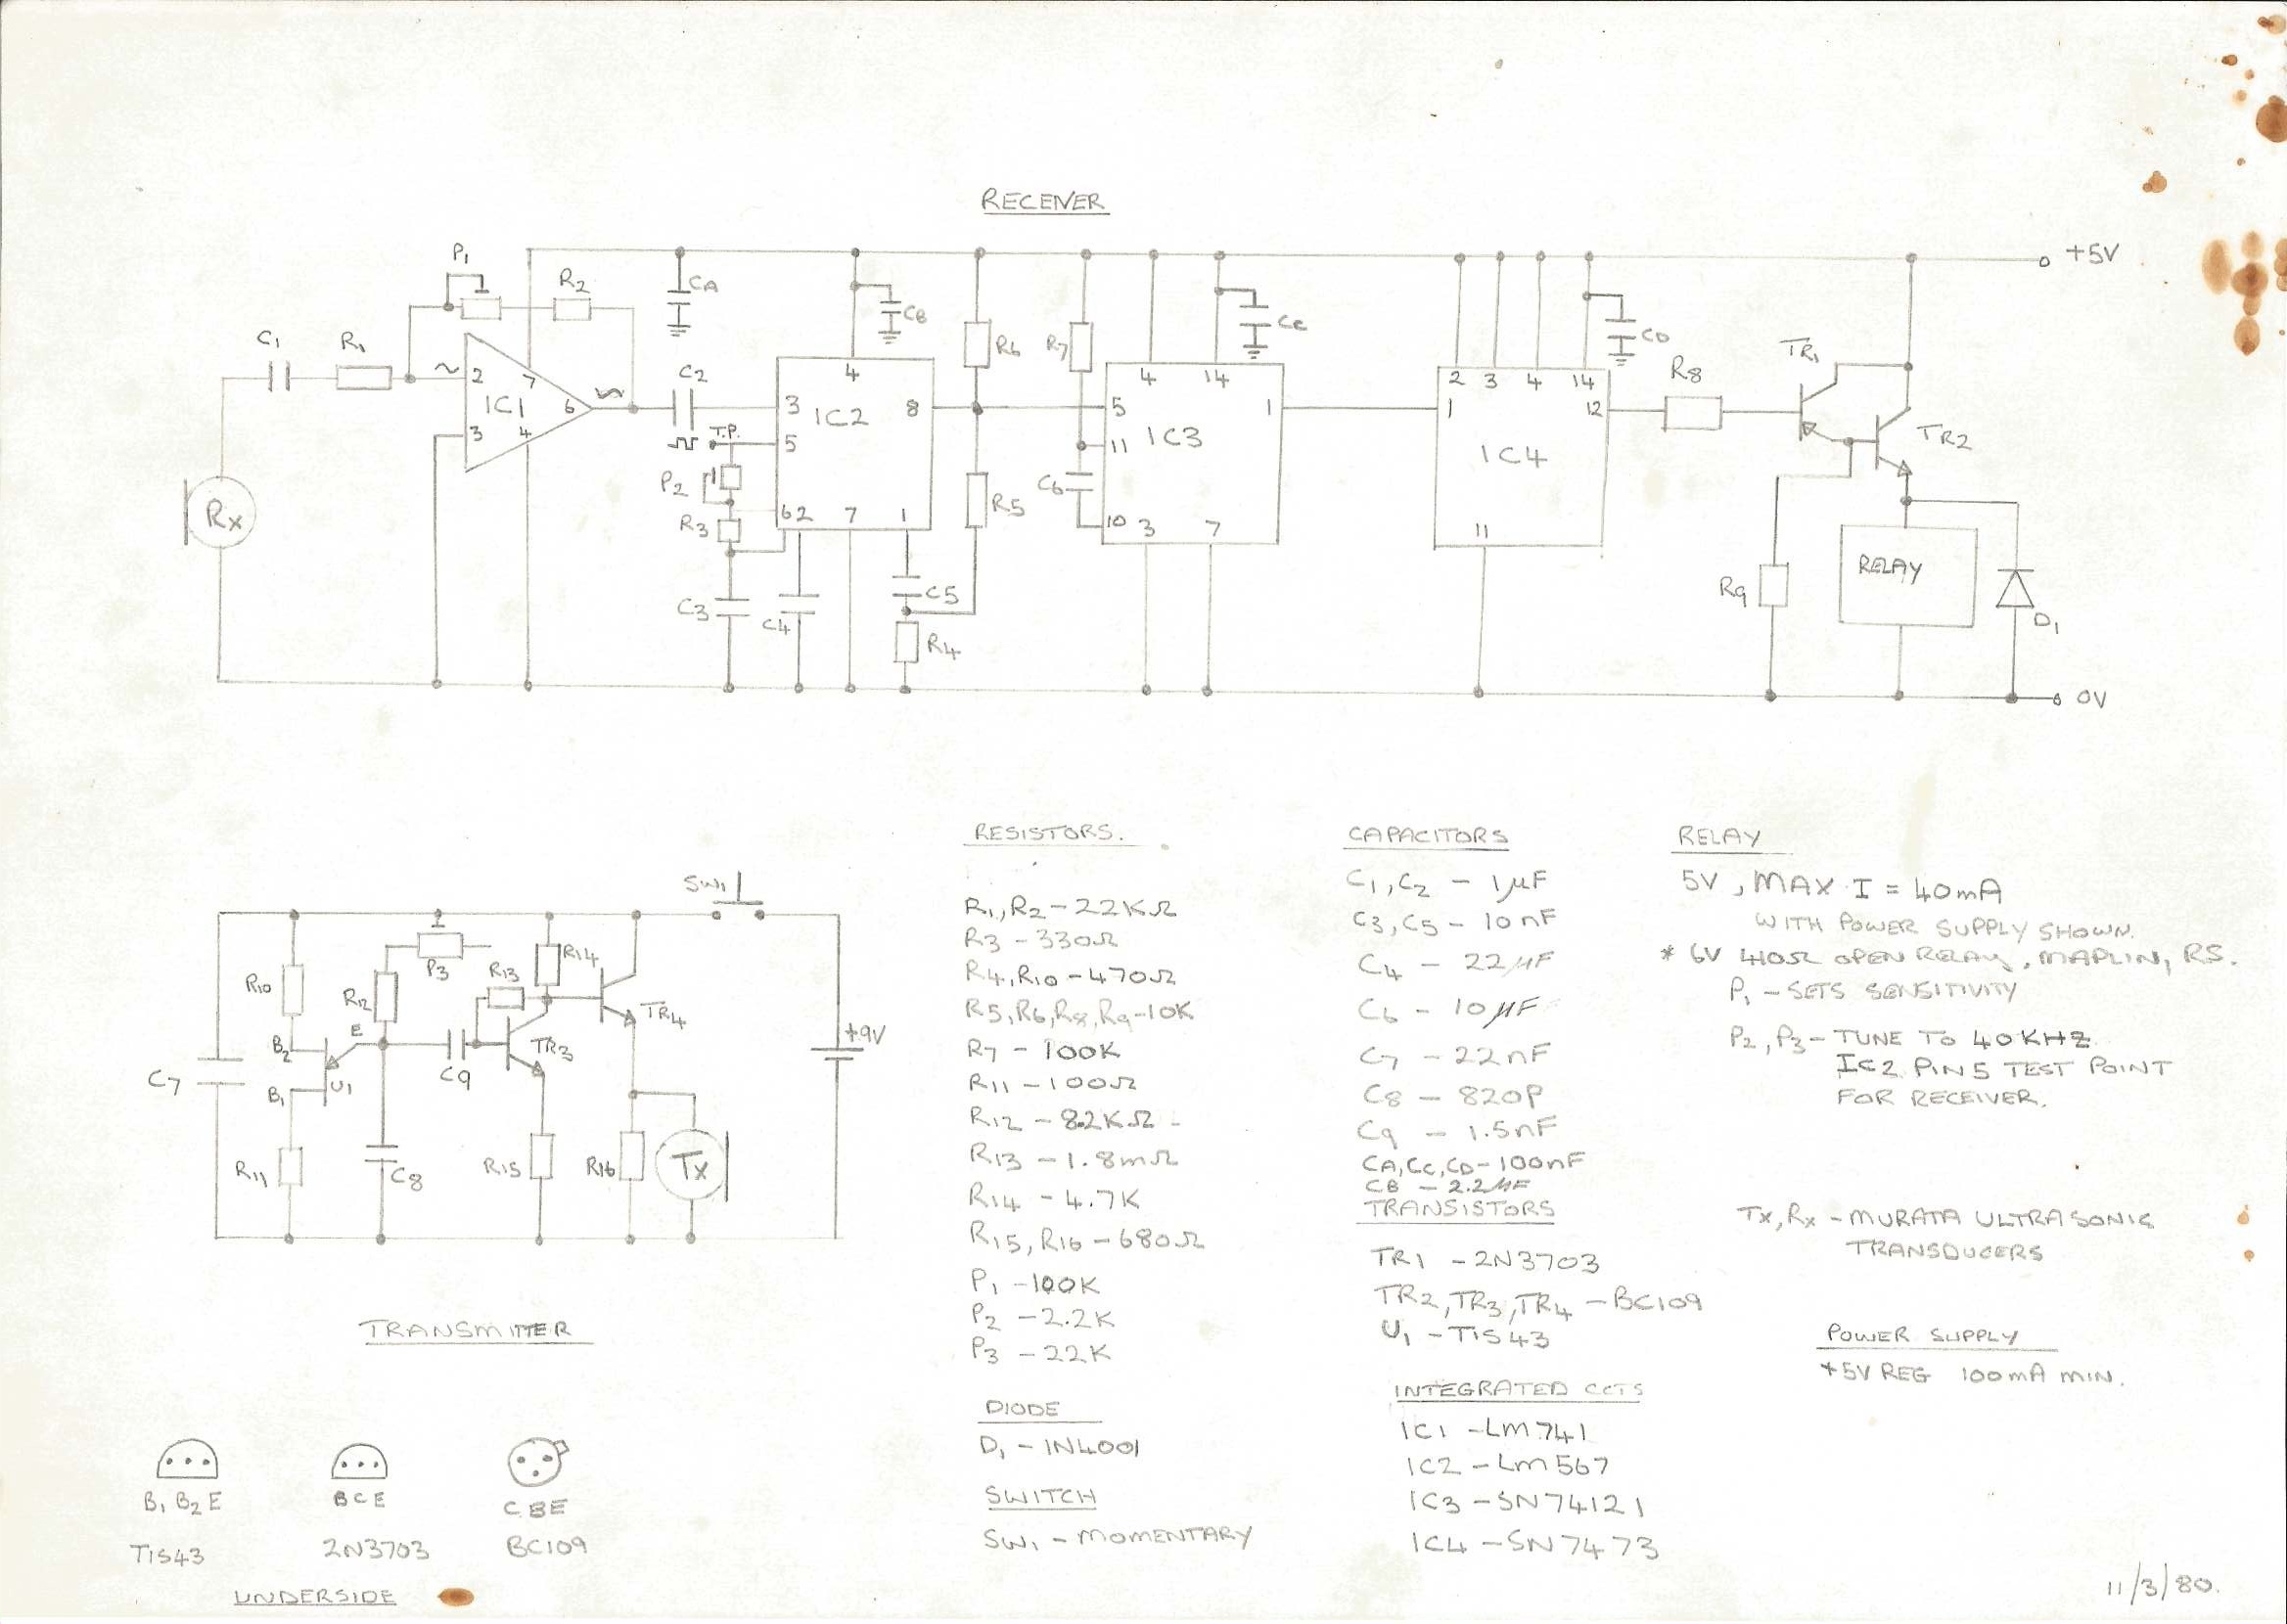 RECEIVER
+5V
P1
R2
CA
CB
CC
CD
C1
R1
2
7
IC1
6
3
4
C2
T.P.
P2
R3
C3
C4
4
3
IC2
8
5
6 2
7
1
C5
R4
R6
R5
R7
C6
4
14
5
IC3
1
11
10
3
7
2
3
4
14
1
12
IC4
11
R8
TR1
TR2
R9
RELAY
D1
Rx
0V
SW1
R10
R12
P3
R13
R14
B2
E
B1
U1
C7
C9
TR3
TR4
+9V
R11
C8
R15
R16
Tx
TRANSMITTER
B1 B2 E
BCE
CBE
TIS43
2N3703
BC109
UNDERSIDE
RESISTORS.
R1,R2-22KΩ
R3-330Ω
R4,R10-470Ω
R5,R6,R8,R9-10K
R7-100K
R11-100Ω
R12-8.2KΩ
R13-1.8mΩ
R14-4.7K
R15,R16-680Ω
P1-100K
P2-2.2K
P3-22K
DIODE
D1-1N4001
SWITCH
SW1-MOMENTARY
CAPACITORS
C1,C2-1μF
C3,C5-10nF
C4-22μF
C6-10μF
C7-22nF
C8-820P
C9-1.5nF
CA,CC,CD-100nF
CB-2.2μF
TRANSISTORS
TR1-2N3703
TR2,TR3,TR4-BC109
U1-TIS43
INTEGRATED CCTS
IC1-LM741
IC2-LM567
IC3-SN74121
IC4-SN7473
RELAY
5V, MAX I = 40mA
WITH POWER SUPPLY SHOWN.
* 6V 410Ω OPEN RELAY, MAPLIN, RS.
P1-SETS SENSITIVITY
P2,P3-TUNE TO 40KHZ
IC2 PIN5 TEST POINT
FOR RECEIVER.
Tx,Rx-MURATA ULTRASONIC
TRANSDUCERS
POWER SUPPLY
+5V REG 100mA MIN.
11/3/80.